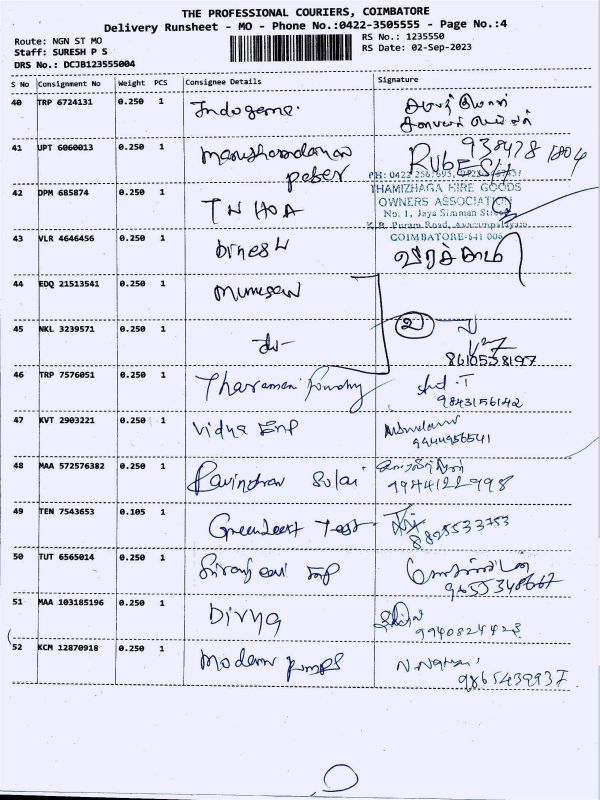 THE PROFESSIONAL COURIERS, COIMBATORE
Delivery Runsheet - MO - Phone No.:0422-3505555 - Page No.:4
Route: NGN ST MO
Staff: SURESH P S
DRS No.: DCJB123555004
RS No.: 1235550
RS Date: 02-Sep-2023
S No Consignment No Weight PCS Consignee Details Signature
40 TRP 6724131 0.250 1
41 UPT 6060013 0.250 1
RUBESH
THAMIZHAGA HIRE GOODS
OWNERS ASSOCIATION
No. 1, Jaya Simman Street
COIMBATORE-641 006
42 DPM 685874 0.250 1 TN HOA
43 VLR 4646456 0.250 1 Dinesh
44 EDQ 21513541 0.250 1 Murugan
45 NKL 3239571 0.250 1 -do-
8610538197
46 TRP 7576051 0.250 1 Tharaman Foundry
9843156142
47 KVT 2903221 0.250 1 Vidya Enp
9944956541
48 MAA 572576382 0.250 1 Ravindran Sulai
9944122998
49 TEN 7543653 0.105 1 Test
8825533753
50 TUT 6565014 0.250 1
9655348667
51 MAA 103185196 0.250 1 Divya
9940824423
52 KCM 12870918 0.250 1 Modern Pumps
9865439937